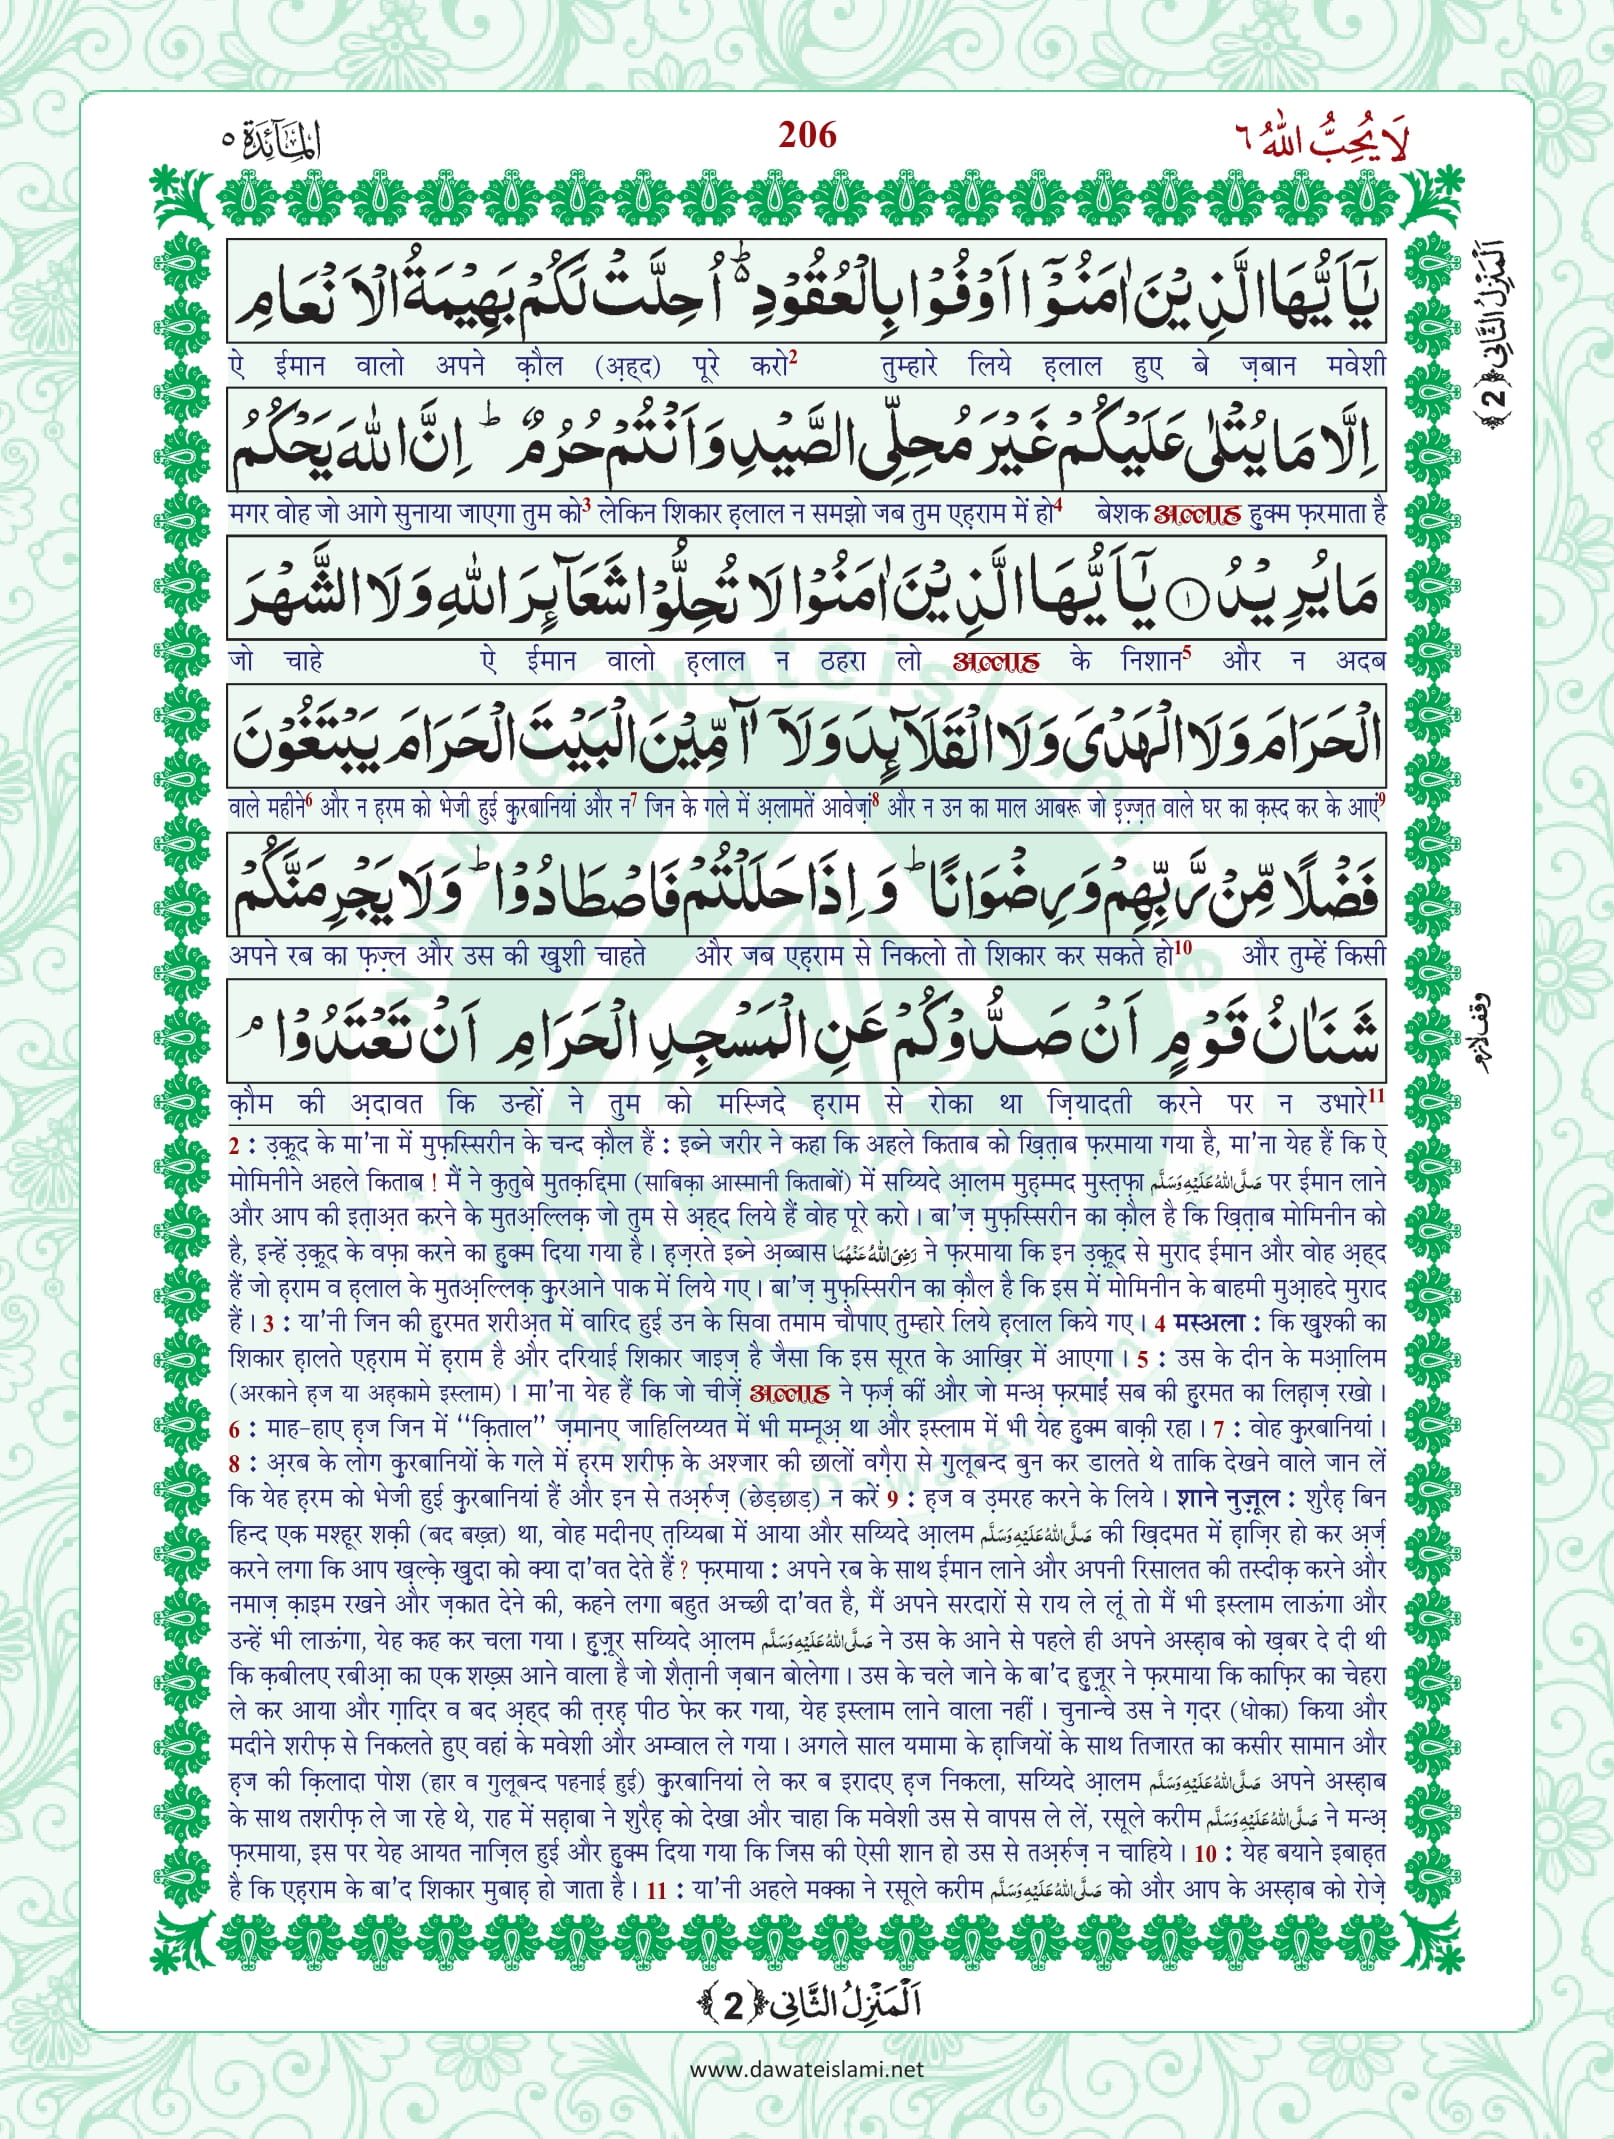 اَلْمَآئِدَة ٥
206
لَا یُحِبُّ اللّٰهُ ٦
اَلْمَنْزِلُ الثَّانِی ﴿2﴾
یٰۤاَیُّهَا الَّذِیْنَ اٰمَنُوْۤا اَوْفُوْا بِالْعُقُوْدِ۬ؕ اُحِلَّتْ لَكُمْ بَهِیْمَةُ الْاَنْعَامِ
ऐ ईमान वालो अपने क़ौल (अ़ह्द) पूरे करो2 तुम्हारे लिये ह़लाल हुए बे ज़बान मवेशी
اِلَّا مَا یُتْلٰى عَلَیْكُمْ غَیْرَ مُحِلِّی الصَّیْدِ وَ اَنْتُمْ حُرُمٌؕ اِنَّ اللّٰهَ یَحْكُمُ
मगर वोह जो आगे सुनाया जाएगा तुम को3 लेकिन शिकार ह़लाल न समझो जब तुम एह़राम में हो4 बेशक अल्लाह हुक्म फ़रमाता है
مَا یُرِیْدُ ۝۱ یٰۤاَیُّهَا الَّذِیْنَ اٰمَنُوْا لَا تُحِلُّوْا شَعَآىٕرَ اللّٰهِ وَ لَا الشَّهْرَ
जो चाहे ऐ ईमान वालो ह़लाल न ठहरा लो अल्लाह के निशान5 और न अदब
الْحَرَامَ وَ لَا الْهَدْیَ وَ لَا الْقَلَآىٕدَ وَ لَاۤ آٰمِّیْنَ الْبَیْتَ الْحَرَامَ یَبْتَغُوْنَ
वाले महीने6 और न ह़रम को भेजी हुई क़ुरबानियां और न7 जिन के गले में अ़लामतें आवेज़ां8 और न उन का माल आबरू जो इ़ज़्ज़त वाले घर का क़स्द कर के आएं9
فَضْلًا مِّنْ رَّبِّهِمْ وَ رِضْوَانًاؕ وَ اِذَا حَلَلْتُمْ فَاصْطَادُوْاؕ وَ لَا یَجْرِمَنَّكُمْ
अपने रब का फ़ज़्ल और उस की ख़ुशी चाहते और जब एह़राम से निकलो तो शिकार कर सकते हो10 और तुम्हें किसी
شَنَاٰنُ قَوْمٍ اَنْ صَدُّوْكُمْ عَنِ الْمَسْجِدِ الْحَرَامِ اَنْ تَعْتَدُوْاۘ
وقف لازم
क़ौम की अ़दावत कि उन्हों ने तुम को मस्जिदे ह़राम से रोका था ज़ियादती करने पर न उभारे11
2 : उ़क़ूद के मा'ना में मुफ़स्सिरीन के चन्द क़ौल हैं : इब्ने जरीर ने कहा कि अहले किताब को ख़ित़ाब फ़रमाया गया है, मा'ना येह हैं कि ऐ
मोमिनीने अहले किताब ! मैं ने कुतुबे मुतक़द्दिमा (साबिक़ा आस्मानी किताबों) में सय्यिदे आ़लम मुह़म्मद मुस्त़फ़ा صَلَّی اللّٰهُ عَلَیْهِ وَسَلَّم पर ईमान लाने
और आप की इत़ाअ़त करने के मुतअ़ल्लिक़ जो तुम से अ़ह्द लिये हैं वोह पूरे करो। बा'ज़ मुफ़स्सिरीन का क़ौल है कि ख़ित़ाब मोमिनीन को
है, इन्हें उ़क़ूद के वफ़ा करने का हुक्म दिया गया है। ह़ज़रते इब्ने अ़ब्बास رَضِیَ اللّٰهُ عَنْهُمَا ने फ़रमाया कि इन उ़क़ूद से मुराद ईमान और वोह अ़ह्द
हैं जो ह़राम व ह़लाल के मुतअ़ल्लिक़ क़ुरआने पाक में लिये गए। बा'ज़ मुफ़स्सिरीन का क़ौल है कि इस में मोमिनीन के बाहमी मुआ़हदे मुराद
हैं। 3 : या'नी जिन की हुरमत शरीअ़त में वारिद हुई उन के सिवा तमाम चौपाए तुम्हारे लिये ह़लाल किये गए। 4 मस्अला : कि ख़ुश्की का
शिकार ह़ालते एह़राम में ह़राम है और दरियाई शिकार जाइज़ है जैसा कि इस सूरत के आख़िर में आएगा। 5 : उस के दीन के मआ़लिम
(अरकाने ह़ज या अह़कामे इस्लाम)। मा'ना येह हैं कि जो चीज़ें अल्लाह ने फ़र्ज़ कीं और जो मन्अ़ फ़रमाईं सब की हुरमत का लिह़ाज़ रखो।
6 : माह-हाए ह़ज जिन में ‘‘क़िताल’’ ज़मानए जाहिलिय्यत में भी मम्नूअ़ था और इस्लाम में भी येह हुक्म बाक़ी रहा। 7 : वोह क़ुरबानियां।
8 : अ़रब के लोग क़ुरबानियों के गले में ह़रम शरीफ़ के अश्जार की छालों वग़ैरा से गुलूबन्द बुन कर डालते थे ताकि देखने वाले जान लें
कि येह ह़रम को भेजी हुई क़ुरबानियां हैं और इन से तअ़र्रुज़ (छेड़छाड़) न करें 9 : ह़ज व उ़मरह करने के लिये। शाने नुज़ूल : शुरैह़ बिन
हिन्द एक मश्हूर शक़ी (बद बख़्त) था, वोह मदीनए त़य्यिबा में आया और सय्यिदे आ़लम صَلَّی اللّٰهُ عَلَیْهِ وَسَلَّم की ख़िदमत में ह़ाज़िर हो कर अ़र्ज़
करने लगा कि आप ख़ल्क़े ख़ुदा को क्या दा'वत देते हैं ? फ़रमाया : अपने रब के साथ ईमान लाने और अपनी रिसालत की तस्दीक़ करने और
नमाज़ क़ाइम रखने और ज़कात देने की, कहने लगा बहुत अच्छी दा'वत है, मैं अपने सरदारों से राय ले लूं तो मैं भी इस्लाम लाऊंगा और
उन्हें भी लाऊंगा, येह कह कर चला गया। हुज़ूर सय्यिदे आ़लम صَلَّی اللّٰهُ عَلَیْهِ وَسَلَّم ने उस के आने से पहले ही अपने अस्ह़ाब को ख़बर दे दी थी
कि क़बीलए रबीआ़ का एक शख़्स आने वाला है जो शैत़ानी ज़बान बोलेगा। उस के चले जाने के बा'द हुज़ूर ने फ़रमाया कि काफ़िर का चेहरा
ले कर आया और ग़ादिर व बद अ़ह्द की त़रह़ पीठ फेर कर गया, येह इस्लाम लाने वाला नहीं। चुनान्चे उस ने ग़दर (धोका) किया और
मदीने शरीफ़ से निकलते हुए वहां के मवेशी और अम्वाल ले गया। अगले साल यमामा के ह़ाजियों के साथ तिजारत का कसीर सामान और
ह़ज की क़िलादा पोश (हार व गुलूबन्द पहनाई हुई) क़ुरबानियां ले कर ब इरादए ह़ज निकला, सय्यिदे आ़लम صَلَّی اللّٰهُ عَلَیْهِ وَسَلَّم अपने अस्ह़ाब
के साथ तशरीफ़ ले जा रहे थे, राह में सह़ाबा ने शुरैह़ को देखा और चाहा कि मवेशी उस से वापस ले लें, रसूले करीम صَلَّی اللّٰهُ عَلَیْهِ وَسَلَّم ने मन्अ़
फ़रमाया, इस पर येह आयत नाज़िल हुई और हुक्म दिया गया कि जिस की ऐसी शान हो उस से तअ़र्रुज़ न चाहिये। 10 : येह बयाने इबाह़त
है कि एह़राम के बा'द शिकार मुबाह़ हो जाता है। 11 : या'नी अहले मक्का ने रसूले करीम صَلَّی اللّٰهُ عَلَیْهِ وَسَلَّم को और आप के अस्ह़ाब को रोज़े
اَلْمَنْزِلُ الثَّانِی ﴿2﴾
www.dawateislami.net